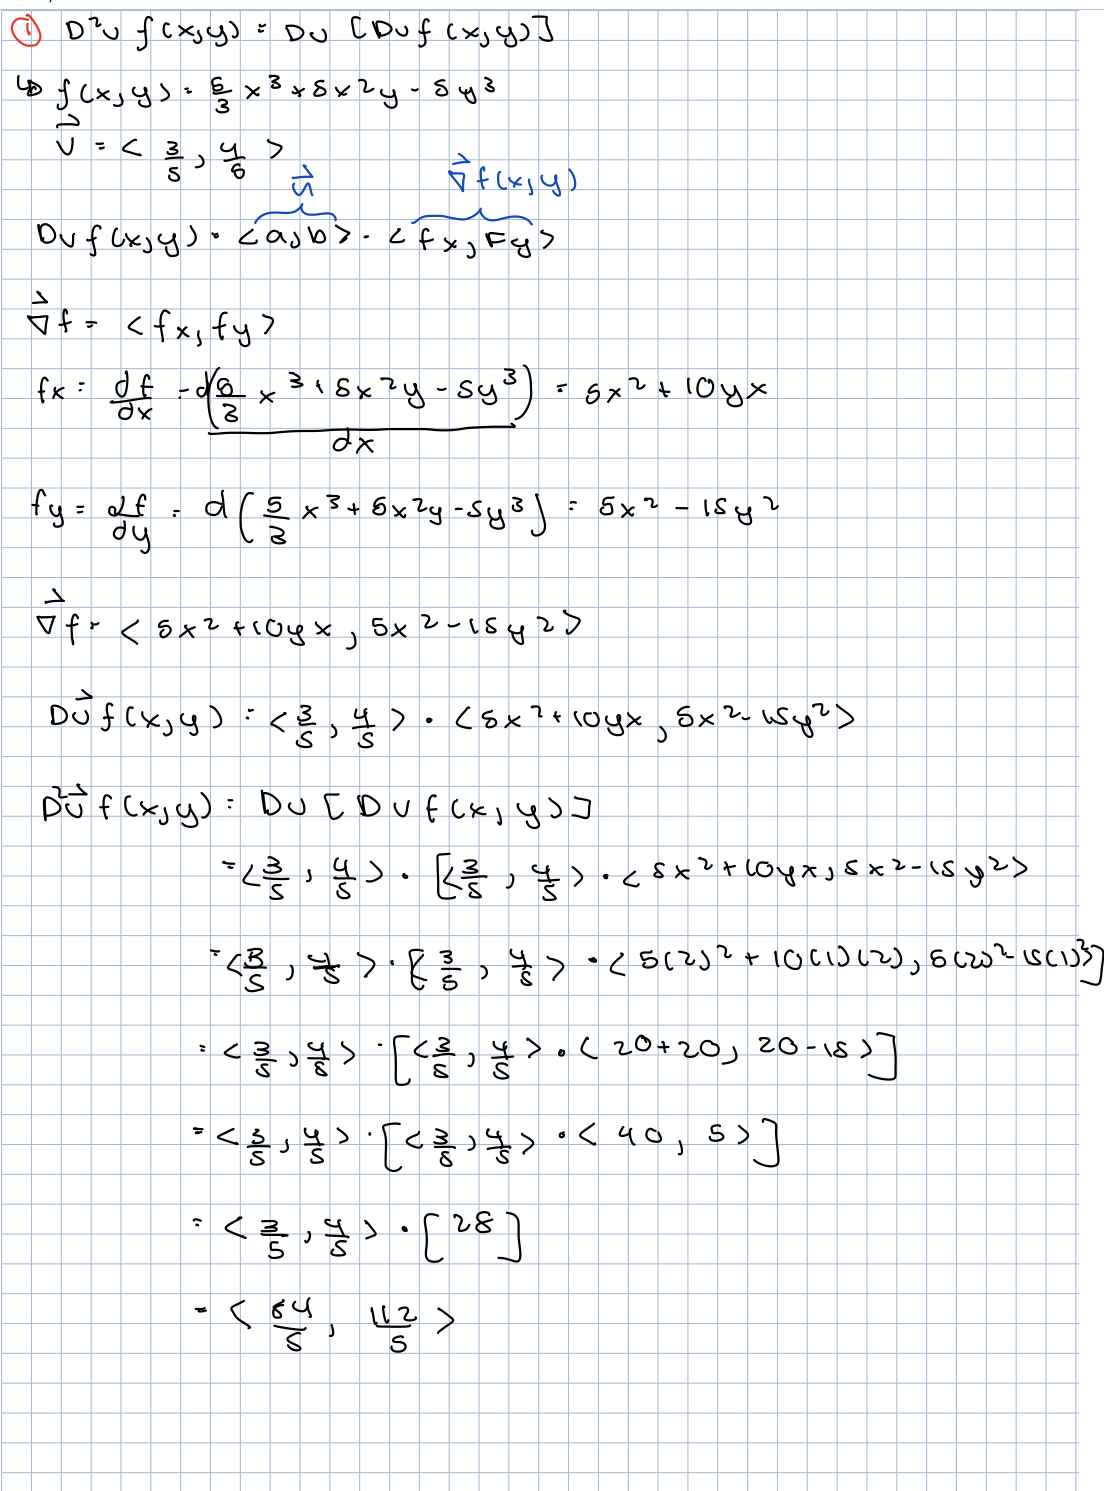 ① D²u f(x,y) = Du [Du f(x,y)]
↳ f(x,y) = 5/3 x³ + 5x²y - 5y³
u⃗ = < 3/5, 4/5 >
u⃗ ∇⃗f(x,y)
Du f(x,y) = <a,b> · <fx, Fy>
∇⃗f = <fx, fy>
fx = df/dx = d(5/3 x³ + 5x²y - 5y³)/dx = 5x² + 10yx
fy = df/dy = d(5/3 x³ + 5x²y - 5y³) = 5x² - 15y²
∇⃗f = < 5x² + 10yx, 5x² - 15y² >
Du⃗ f(x,y) = < 3/5, 4/5 > · < 5x² + 10yx, 5x² - 15y² >
D²u⃗ f(x,y) = Du [Du f(x,y)]
= < 3/5, 4/5 > · [< 3/5, 4/5 > · < 5x² + 10yx, 5x² - 15y² >
= < 3/5, 4/5 > · [ 3/5, 4/5 > · < 5(2)² + 10(1)(2), 5(2)² - 15(1)²]
= < 3/5, 4/5 > · [< 3/5, 4/5 > · < 20+20, 20-15 >]
= < 3/5, 4/5 > · [< 3/5, 4/5 > · < 40, 5 >]
= < 3/5, 4/5 > · [28]
= < 84/5, 112/5 >